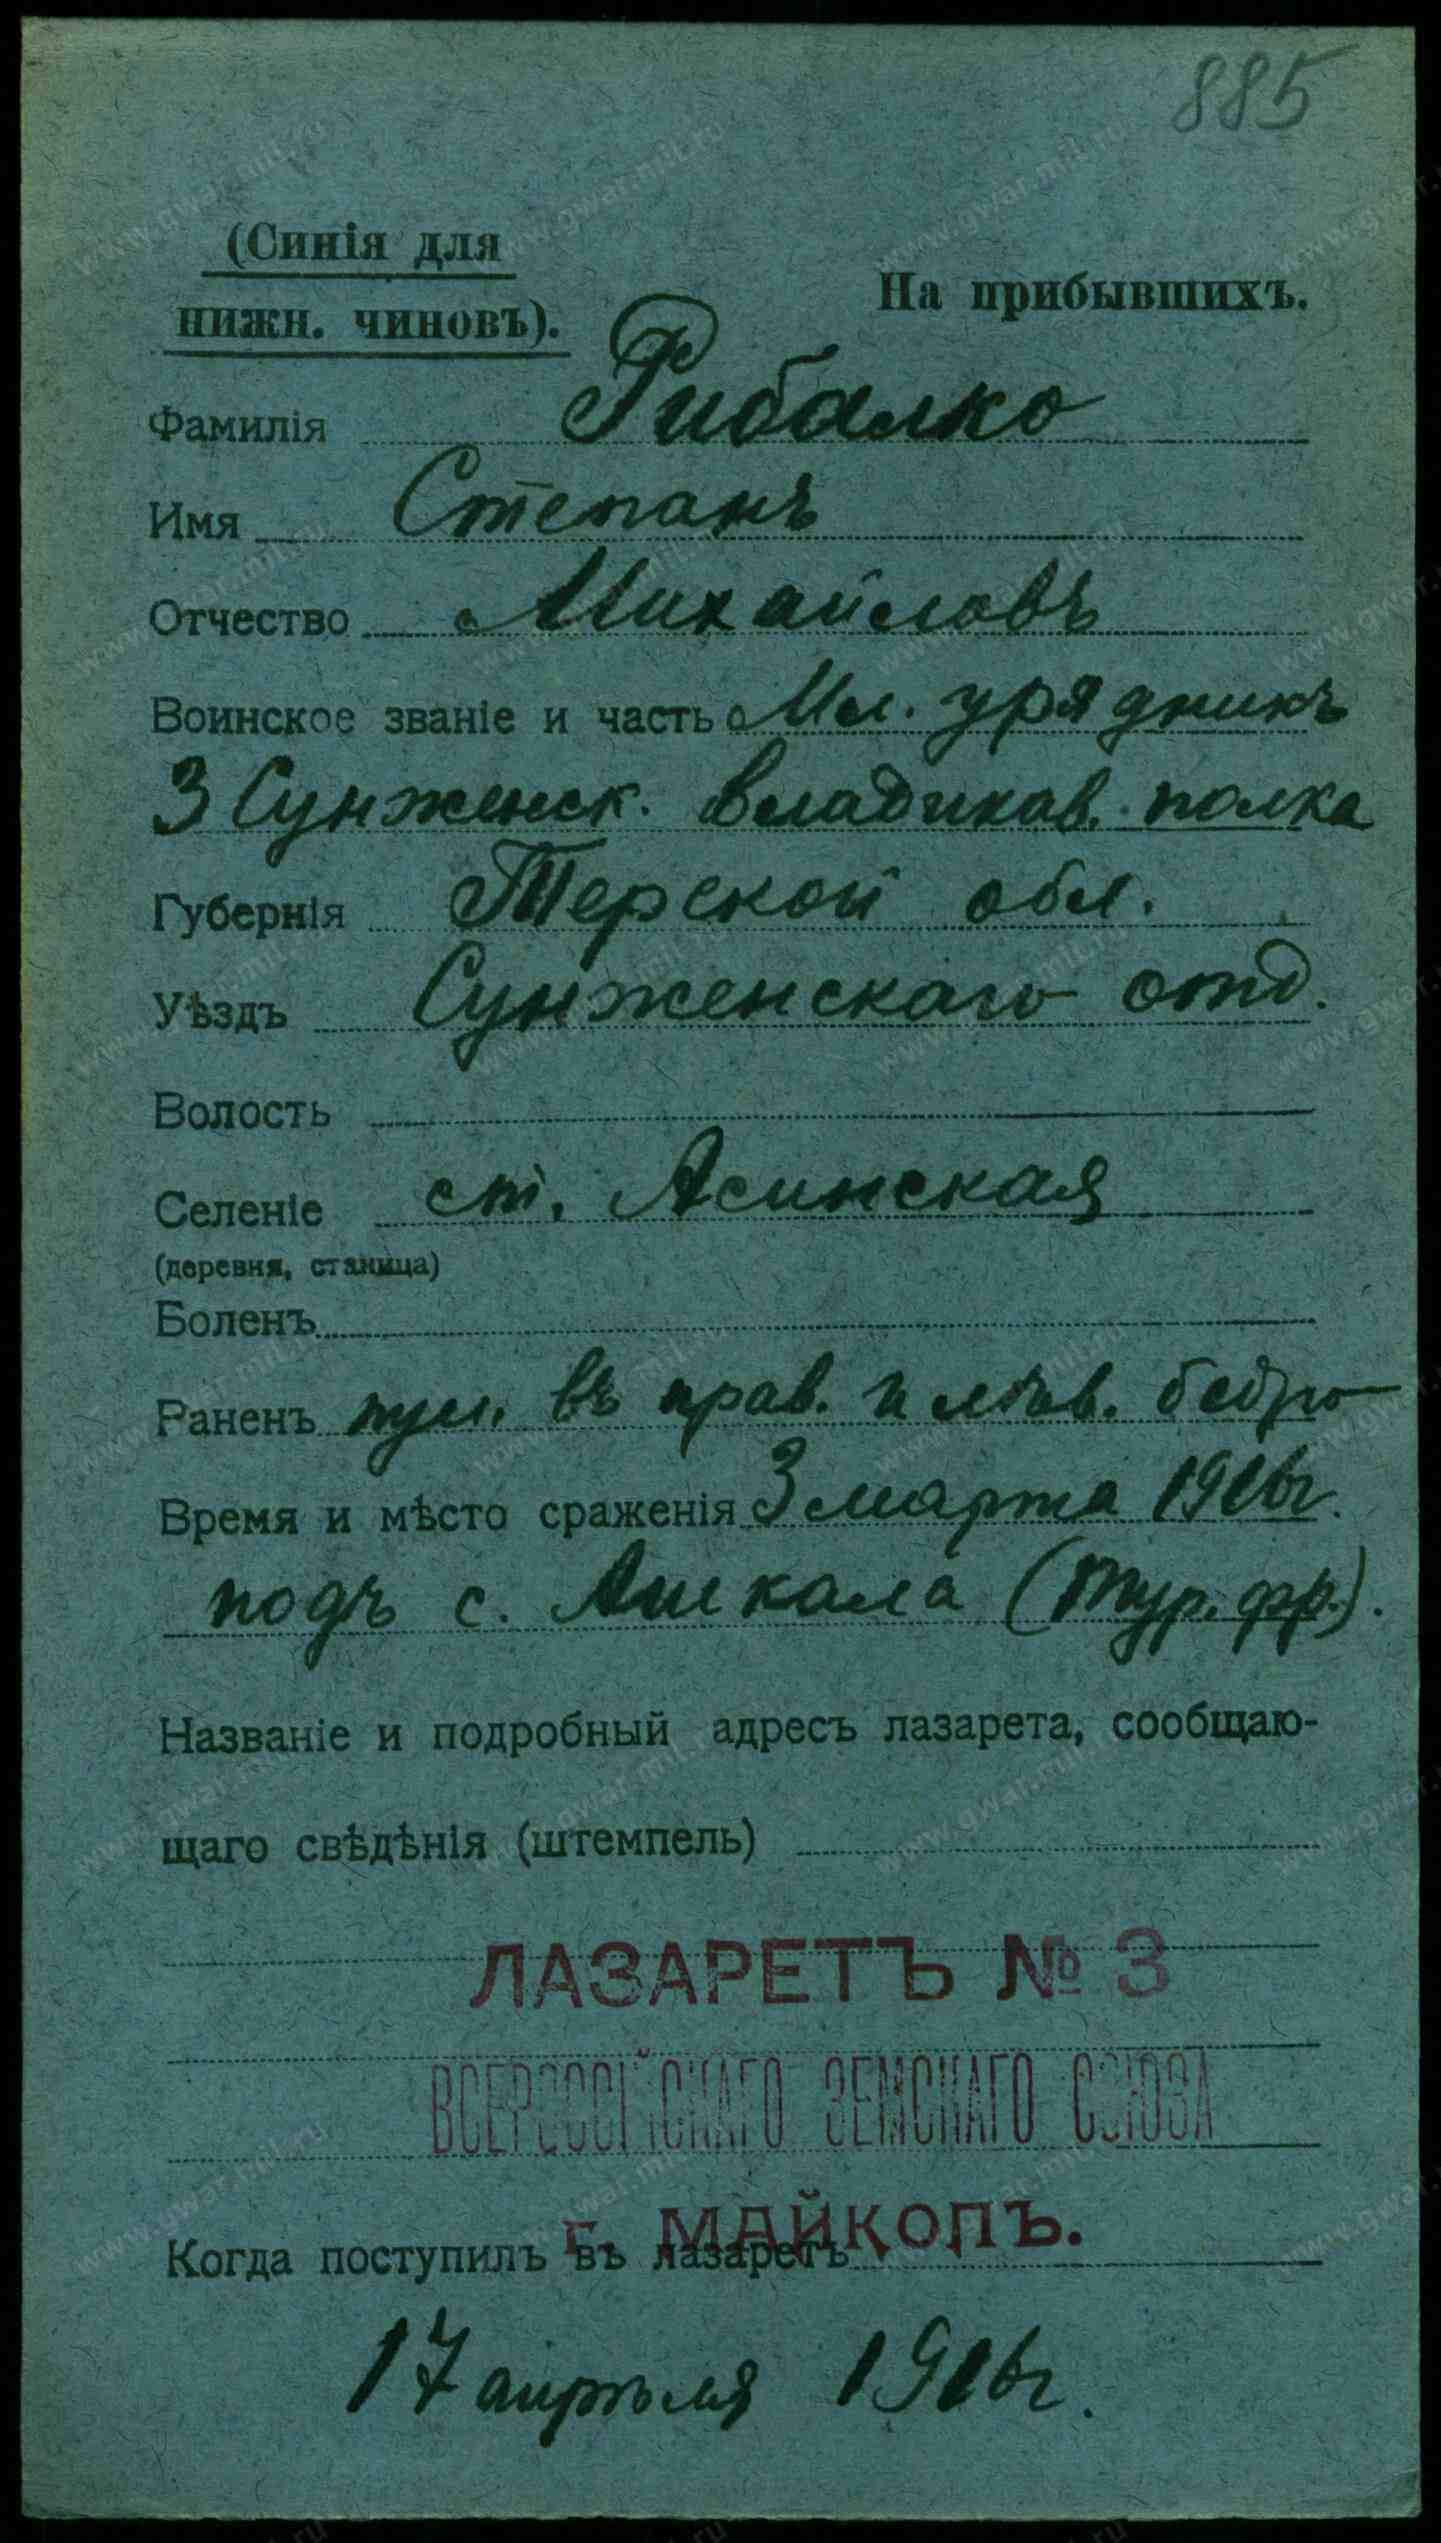 885
(Синія для
нижн. чиновъ).
На прибывшихъ.
Фамилія Рибалко
Имя Степанъ
Отчество Михайловъ
Воинское званіе и часть Мл. урядникъ
3 Сунженск. Владикав. полка
Губернія Терской обл.
Уѣздъ Сунженскаго отд.
Волость
Селеніе ст. Асинская
(деревня, станица)
Боленъ
Раненъ пул. въ прав. и лѣв. бедро
Время и мѣсто сраженія 3 марта 1916 г.
подъ с. Ашкала (Тур. фр.).
Названіе и подробный адресъ лазарета, сообщаю-
щаго свѣдѣнія (штемпель)
ЛАЗАРЕТЪ № 3
ВСЕРОССІЙСКАГО ЗЕМСКАГО СОЮЗА
г. МАЙКОПЪ.
Когда поступилъ въ лазаретъ
17 апрѣля 1916 г.